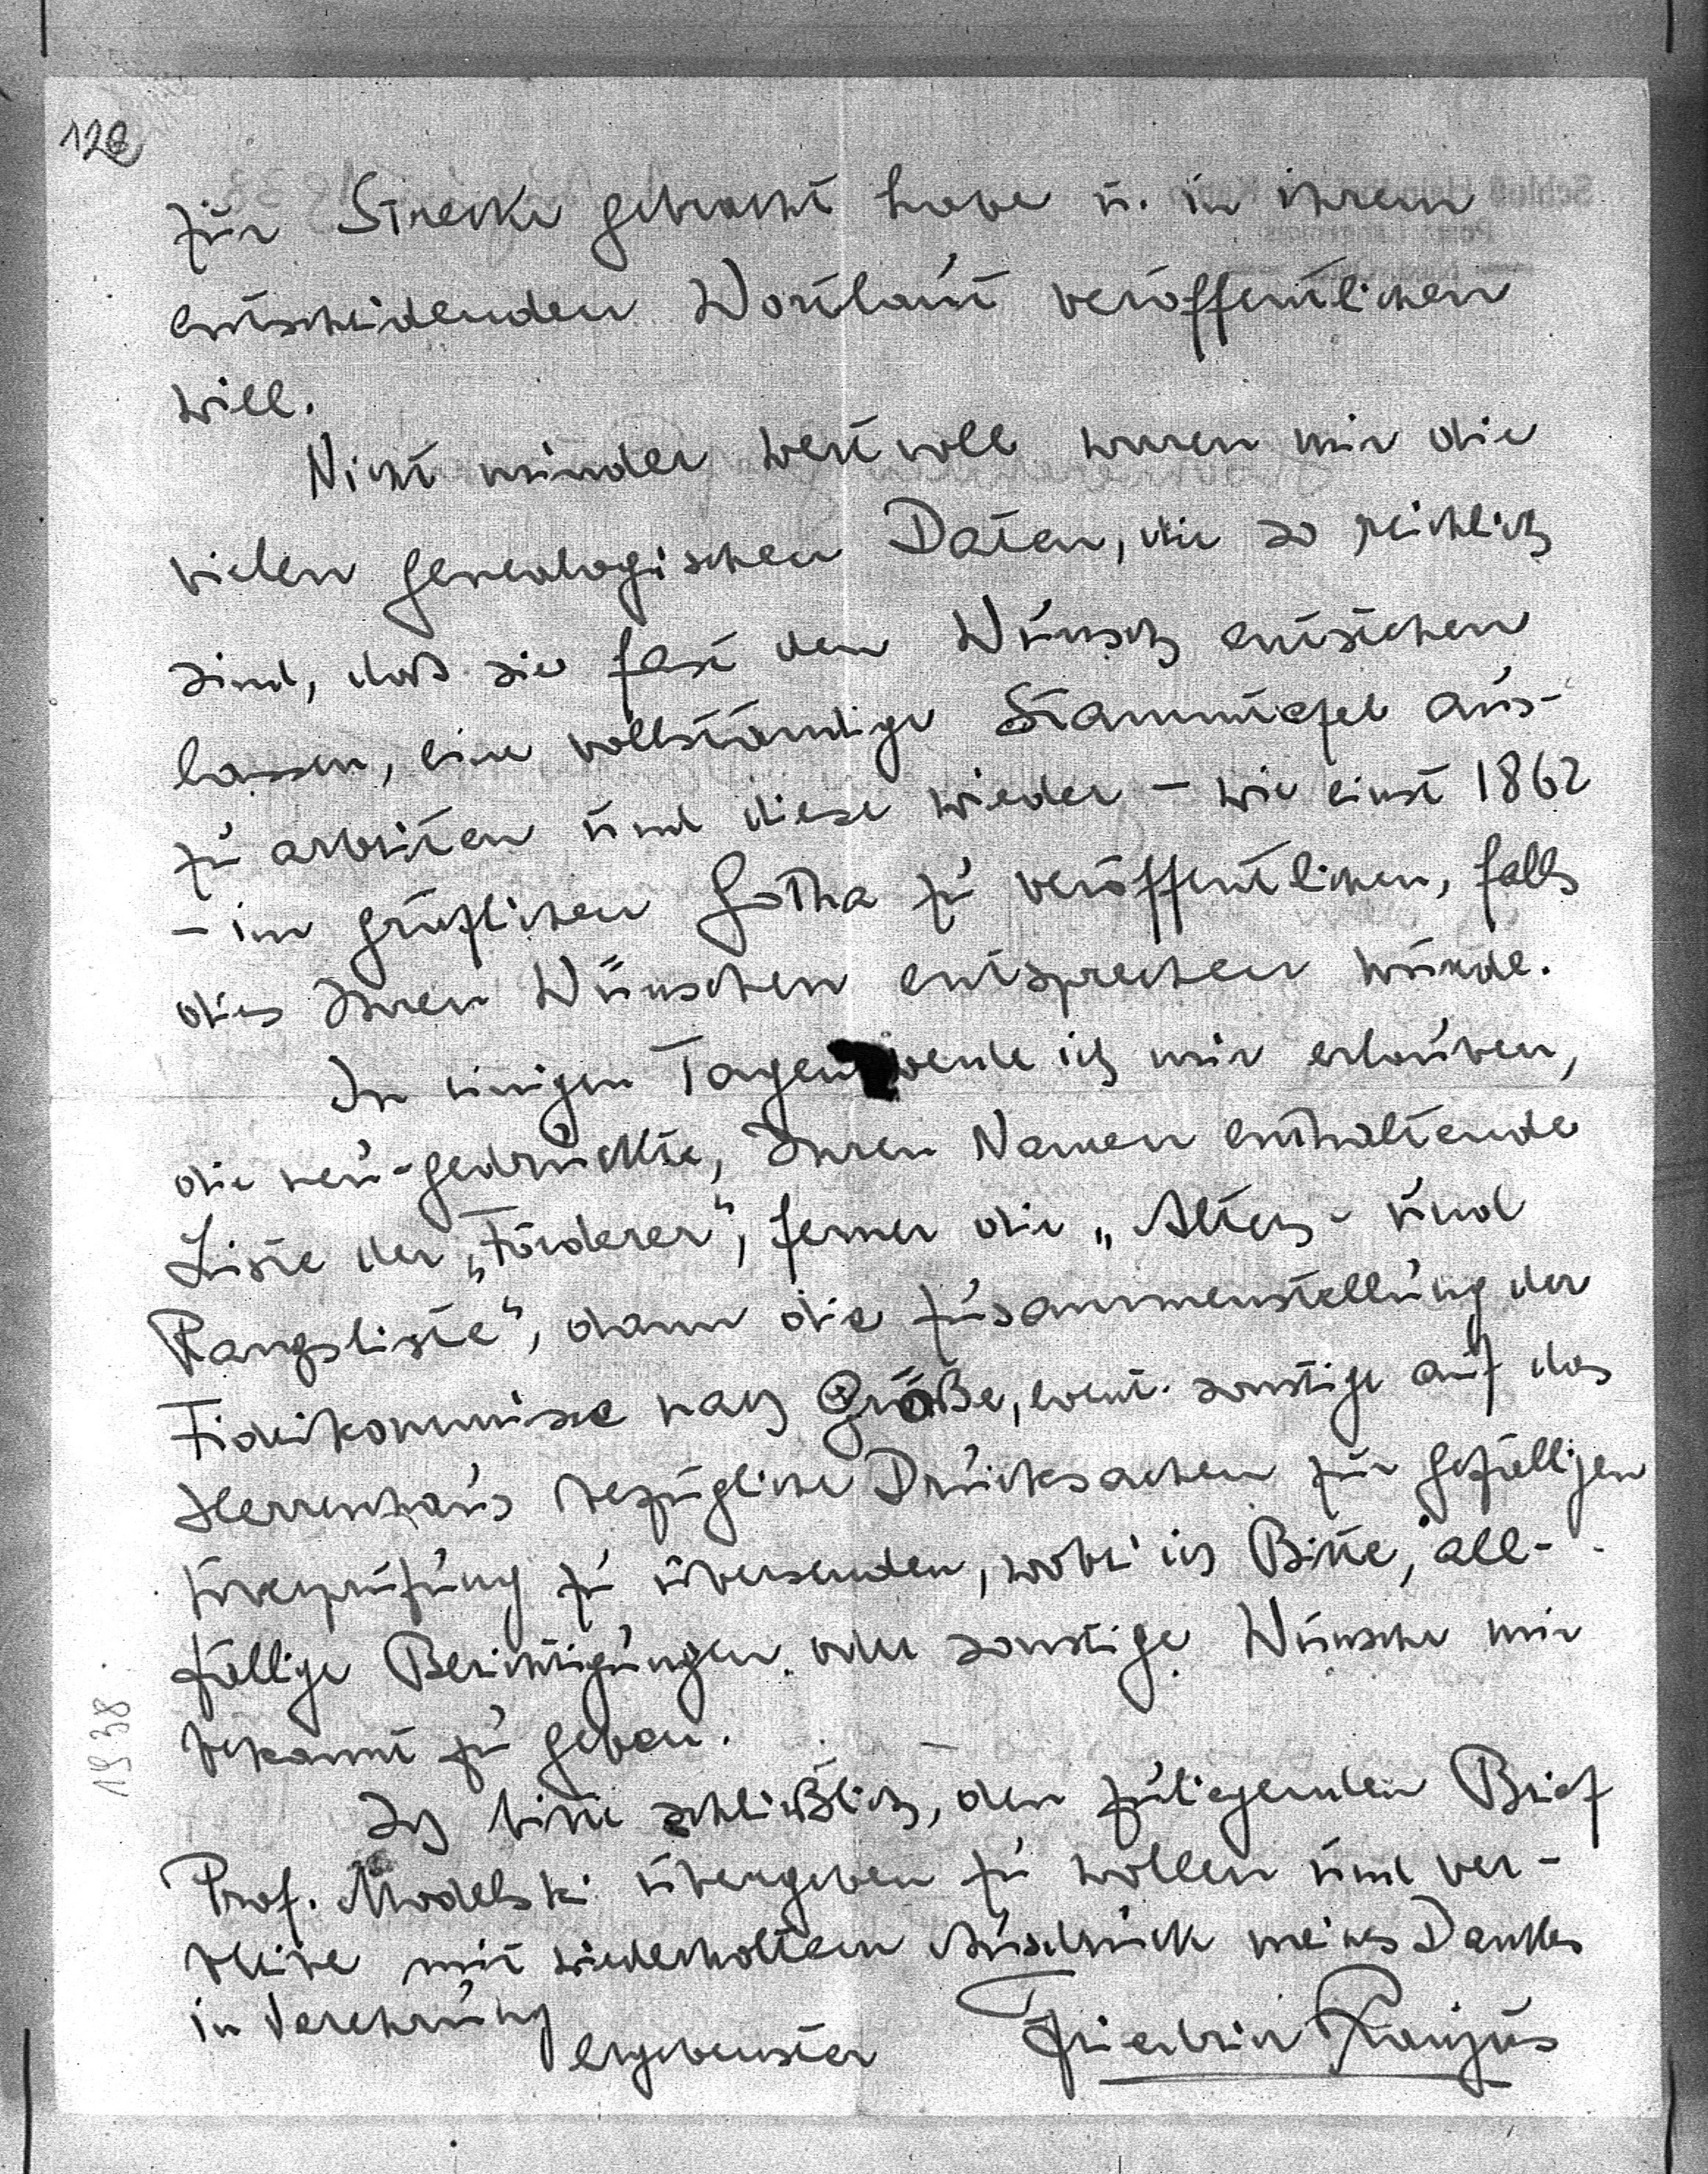 128
zur Strecke gebracht habe u. in ihrem
entscheidenden Wortlaut veröffentlichen
will.
Nicht minder wertvoll waren mir die
vielen genealogischen Daten, die so reichlich
sind, daß sie fast den Wunsch entstehen
lassen, eine vollständige Stammtafel aus-
zu arbeiten und diese wieder – wie einst 1862
– im gräflichen Gotha zu veröffentlichen, falls
dies Ihren Wünschen entsprechen würde.
In einigen Tagen werde ich mir erlauben,
die neu-gedruckte, Ihren Namen enthaltende
Liste der „Förderer“, ferner die „Alters- und
Rangsliste“, dann die Zusammenstellung der
Fideikommisse nach Größe, event. sonstige auf das
Herrenhaus bezügliche Drucksachen zur gefälligen
Überprüfung zu übersenden, wobei ich Bitte, all-
fällige Berichtigungen oder sonstige Wünsche mir
bekannt zu geben.
Ich bitte schließlich, den zuliegenden Brief
Prof. Modelski übergeben zu wollen und ver-
bleibe mit wiederholtem Ausdruck meines Dankes
in Verehrung
ergebenster Friedrich
1938